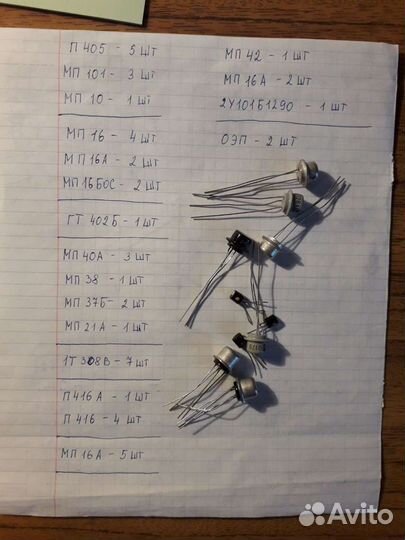 П 405 - 5 шт
МП 101 - 3 шт
МП 10 - 1 шт
МП 16 - 4 шт
МП16А - 2 шт
МП16БОС - 2 шт
ГТ 402Б - 1 шт
МП 40А - 3 шт
МП 38 - 1 шт
МП 37Б - 2 шт
МП 21А - 1 шт
1Т 308В - 7 шт
П416А - 1 шт
П 416 - 4 шт
МП 16А - 5 шт
МП 42 - 1 шт
МП 16А - 2 шт
2У101Б1290 - 1 шт
ОЭП - 2 шт
Avito